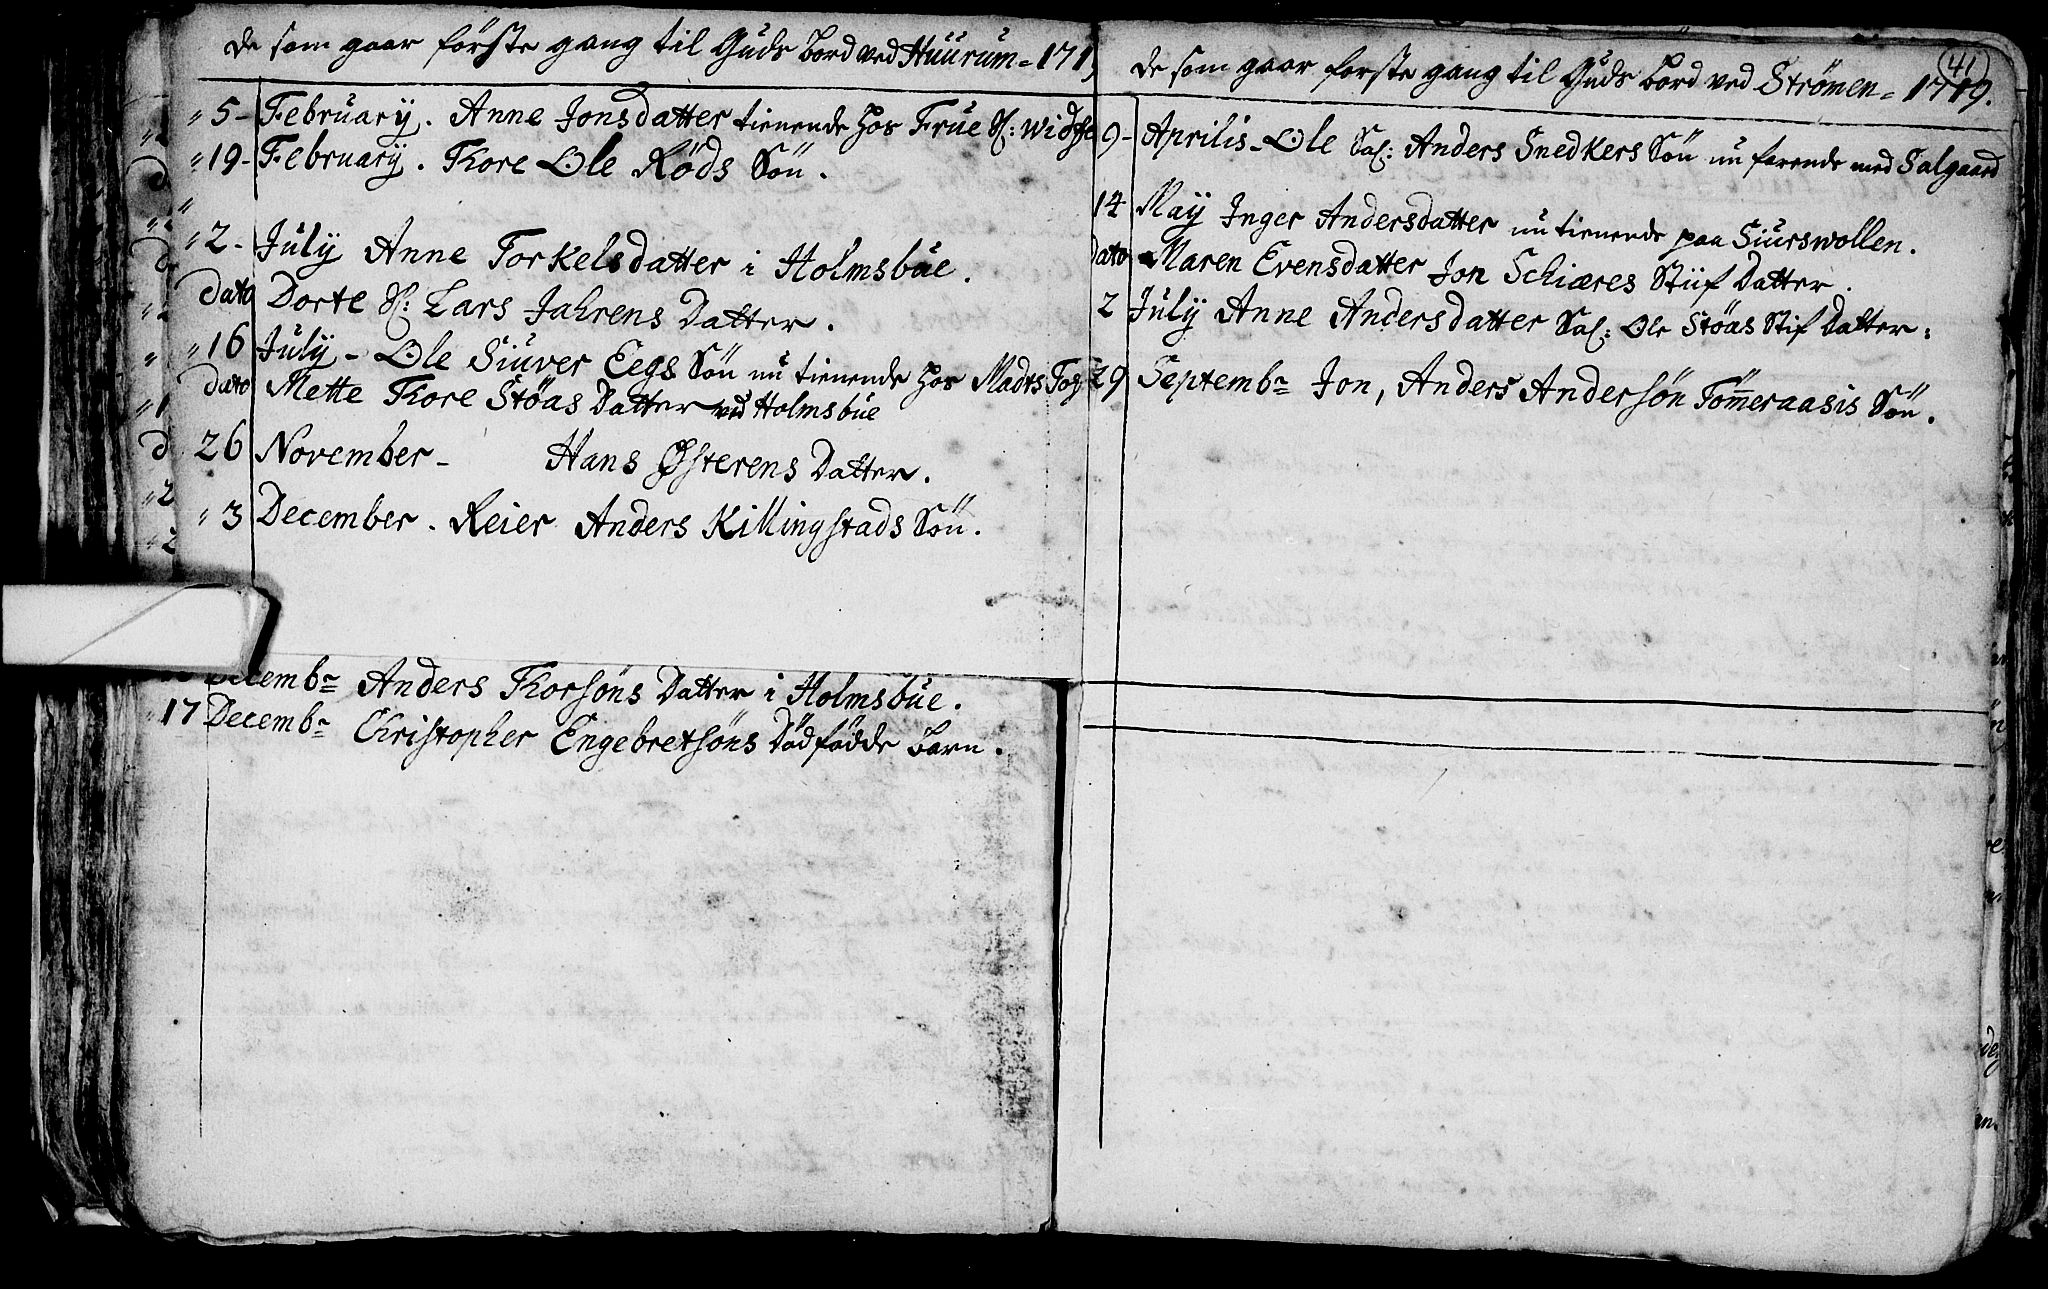 de som gaar förste gang til Guds bord ved Huurum = 171
" 5 - February. Anne Jonsdatter tienende hos Frue Sl:
" 19 - February. Thore Ole Röds Sön.
" 2 - July Anne Torkelsdatter i Holmsbue.
dato Dorte Sl: Lars Jahrens Datter.
" 16 July - Ole Siuver Eegs Sön nu tienende hos Madts
dato Mette Thore Stöas Datter ved Holmsbue
26 November - Hans Østerens Datter.
" 3 December. Reier Anders Killingstads Sön.
Decembr Anders Thorsöns Datter i Holmsbue.
17 Decembr Christopher Engebretsöns Dödfödde barn.
41
de som gaar förste gang til Guds bord ved Strömen = 1719.
9 - Aprilis - Ole Sal: Anders Snedkers Sön nu farende med Salgaard
14 May Inger Andersdatter nu tienende paa Siurswollen.
dato Maren Evensdatter Jon Schiæres Stiif Datter.
2 July Anne Andersdatter Sal: Ole Stöas Stif Datter.
29 Septembr Jon, Anders Andersön Tömeraasis Sön.